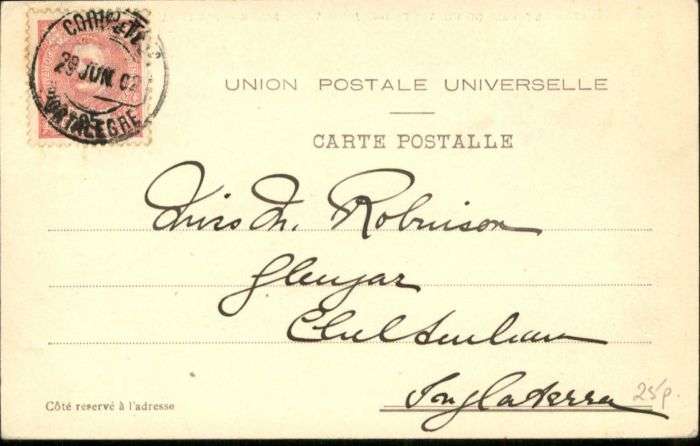 CORREIO
29 JUN. 02
PORTALEGRE
UNION POSTALE UNIVERSELLE
CARTE POSTALLE
Miss M. Robinson
Glengar
Cheltenham
Inglaterra
25p.
Côté reservé à l'adresse